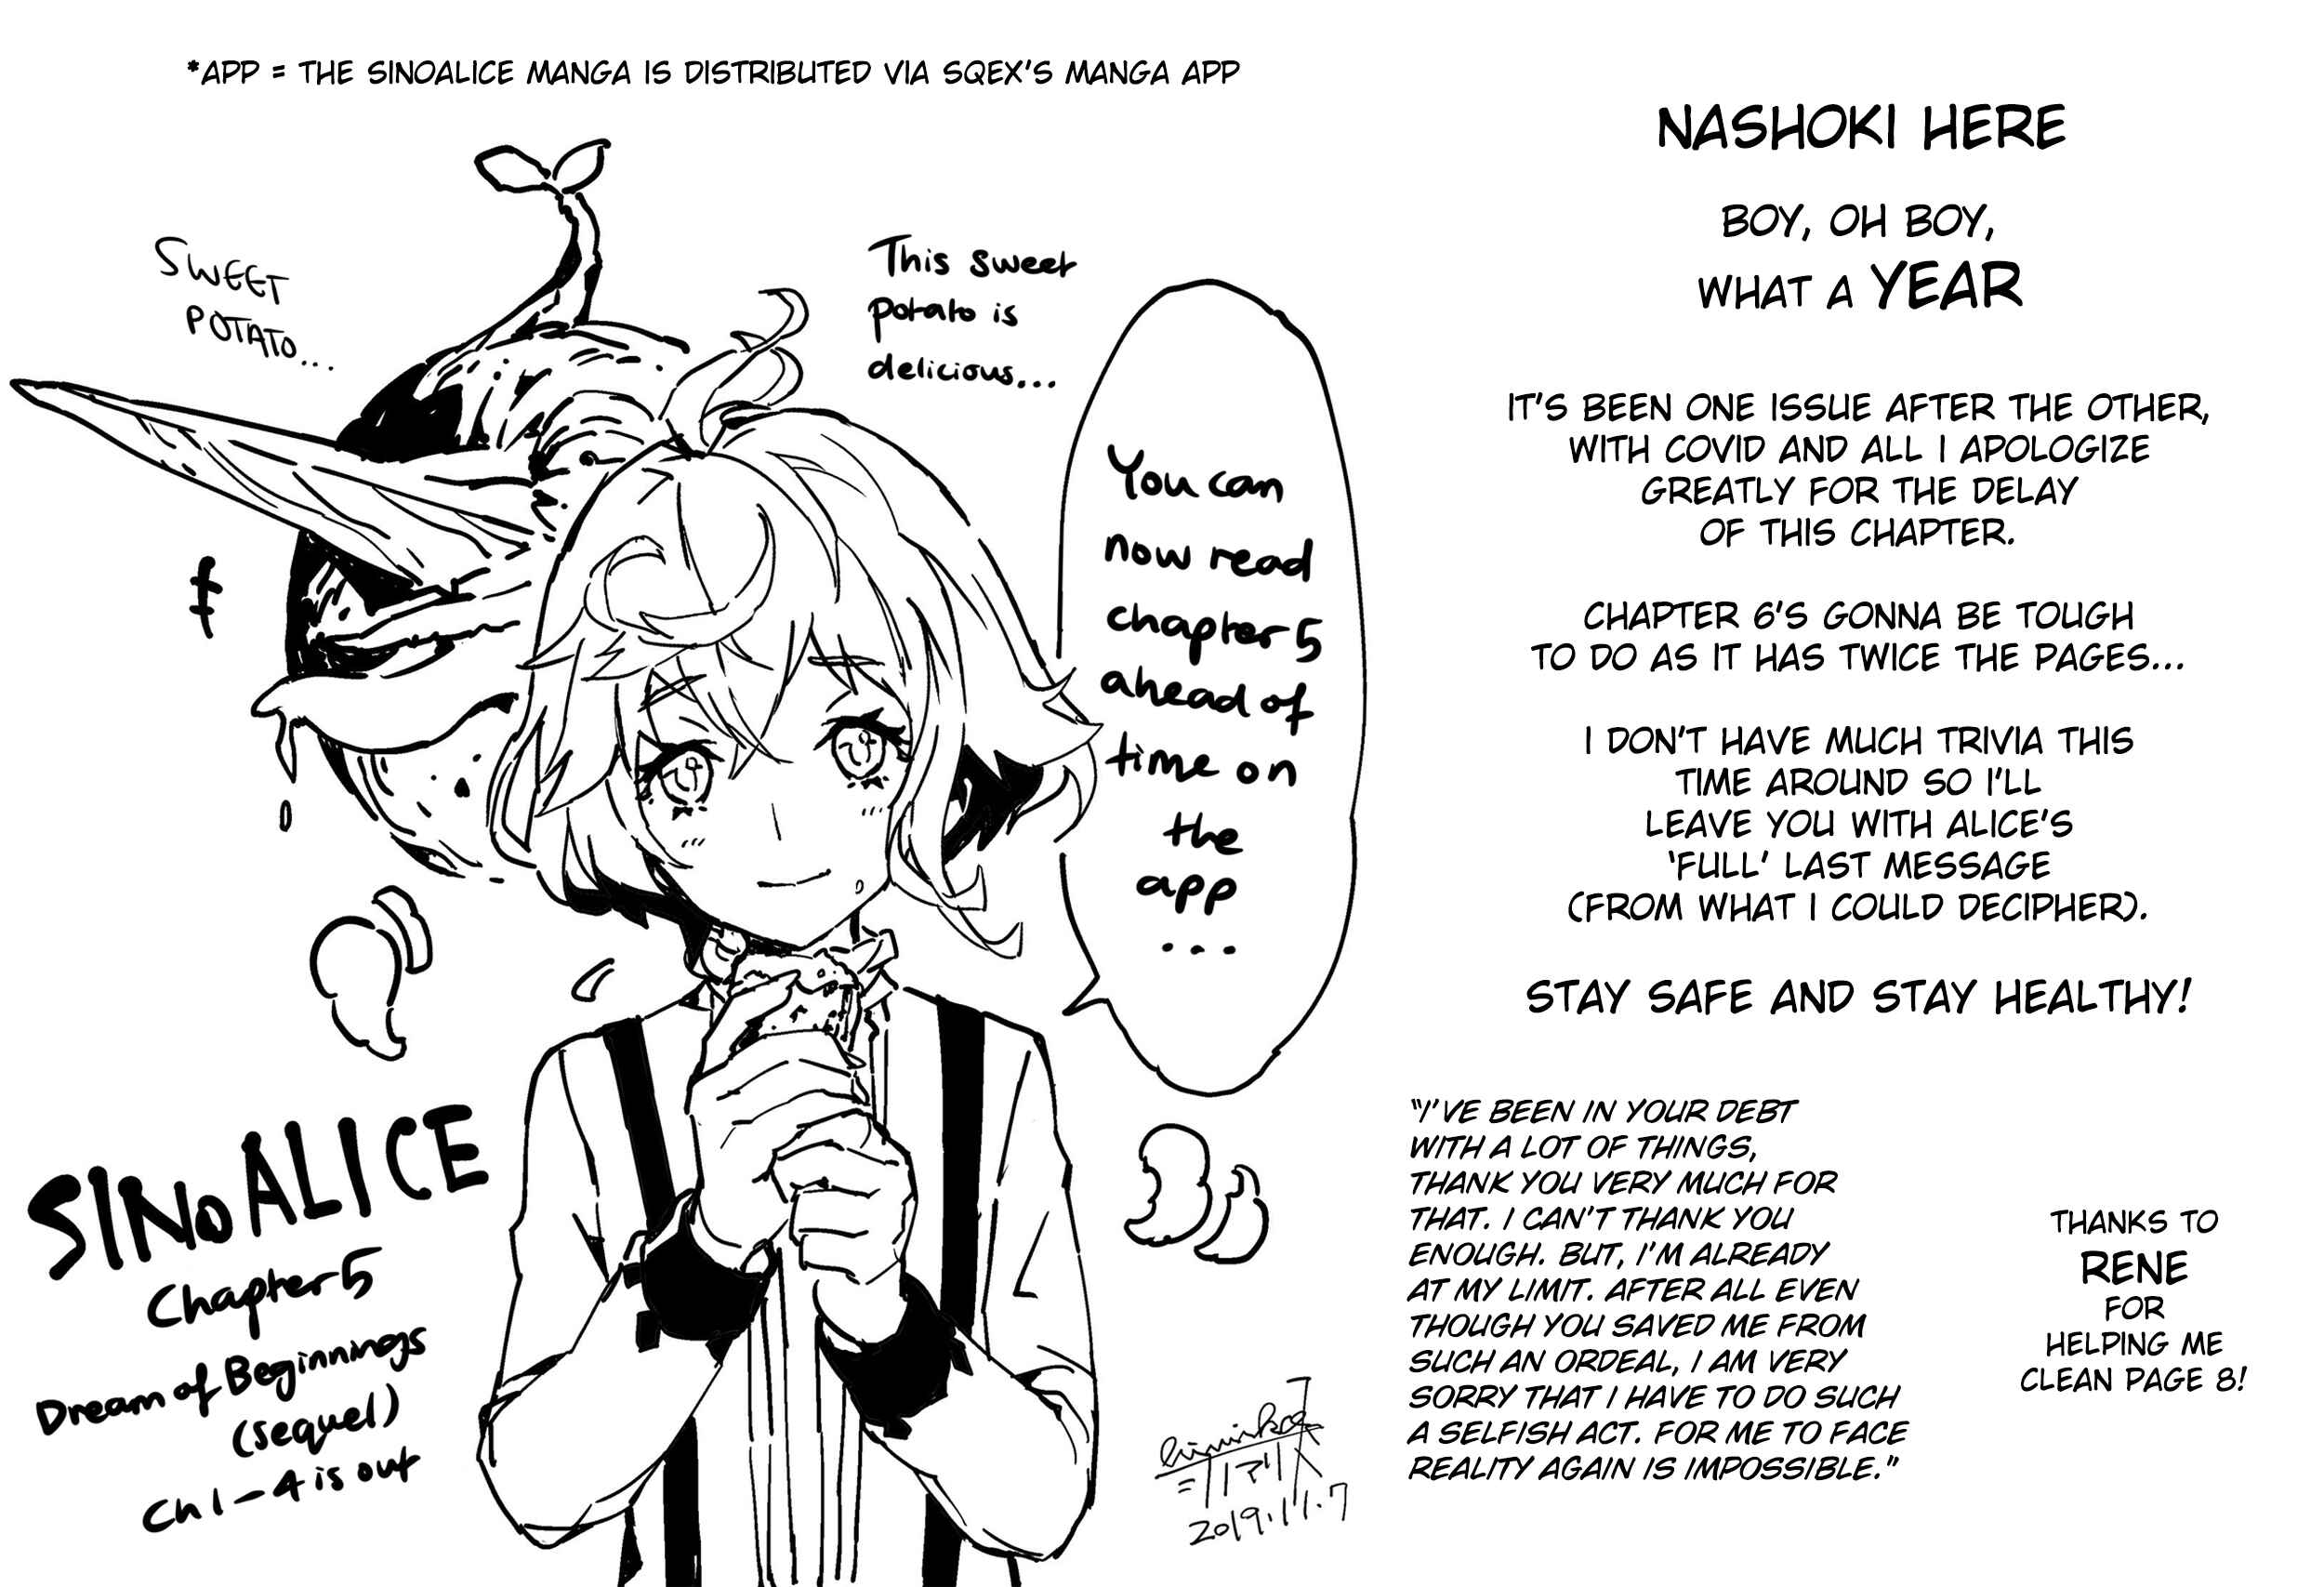 *APP = THE SINOALICE MANGA IS DISTRIBUTED VIA SQEX'S MANGA APP
SWEET
POTATO...
This sweet
potato is
delicious...
You can
now read
chapter 5
ahead of
time on
the
app
...
SINoALICE
Chapter 5
Dream of Beginnings
(sequel)
Ch 1-4 is out
2019.11.7
NASHOKI HERE
BOY, OH BOY,
WHAT A YEAR
IT'S BEEN ONE ISSUE AFTER THE OTHER,
WITH COVID AND ALL I APOLOGIZE
GREATLY FOR THE DELAY
OF THIS CHAPTER.
CHAPTER 6'S GONNA BE TOUGH
TO DO AS IT HAS TWICE THE PAGES...
I DON'T HAVE MUCH TRIVIA THIS
TIME AROUND SO I'LL
LEAVE YOU WITH ALICE'S
'FULL' LAST MESSAGE
(FROM WHAT I COULD DECIPHER).
STAY SAFE AND STAY HEALTHY!
"I'VE BEEN IN YOUR DEBT
WITH A LOT OF THINGS,
THANK YOU VERY MUCH FOR
THAT. I CAN'T THANK YOU
ENOUGH. BUT, I'M ALREADY
AT MY LIMIT. AFTER ALL EVEN
THOUGH YOU SAVED ME FROM
SUCH AN ORDEAL, I AM VERY
SORRY THAT I HAVE TO DO SUCH
A SELFISH ACT. FOR ME TO FACE
REALITY AGAIN IS IMPOSSIBLE."
THANKS TO
RENE
FOR
HELPING ME
CLEAN PAGE 8!